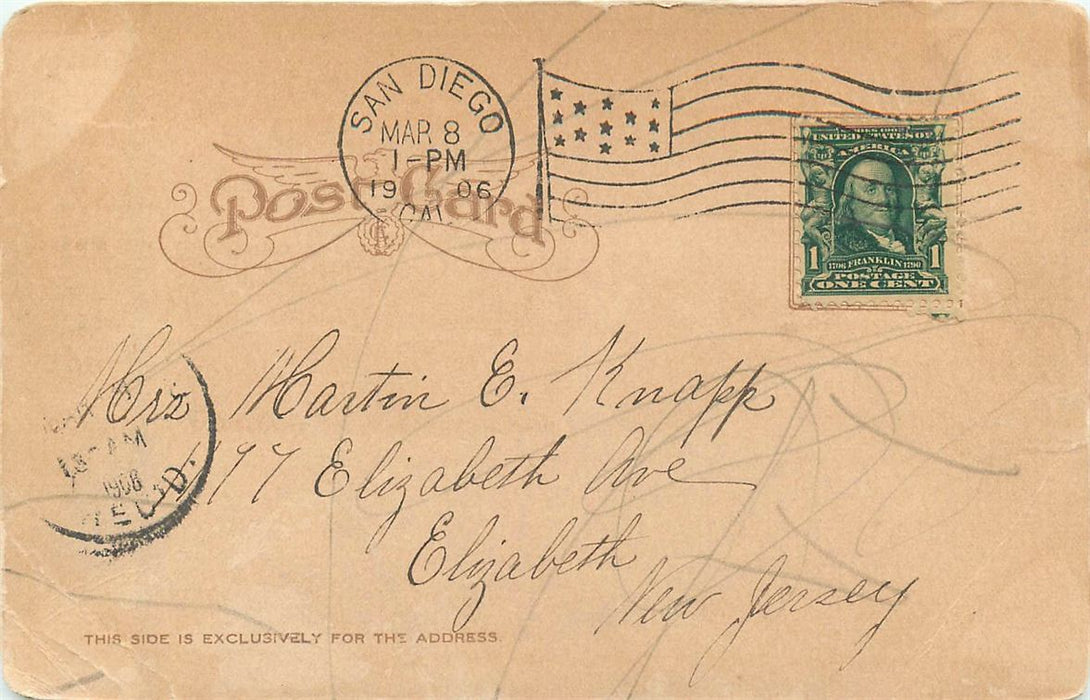 SAN DIEGO
MAR 8
1-PM
19 06
CAL
Post Card
UNITED STATES OF
AMERICA
1 1706 FRANKLIN 1790 1
POSTAGE
ONE CENT
Mrs Martin E. Knapp
197 Elizabeth Ave
Elizabeth
New Jersey
AM
REC'D.
THIS SIDE IS EXCLUSIVELY FOR THE ADDRESS.